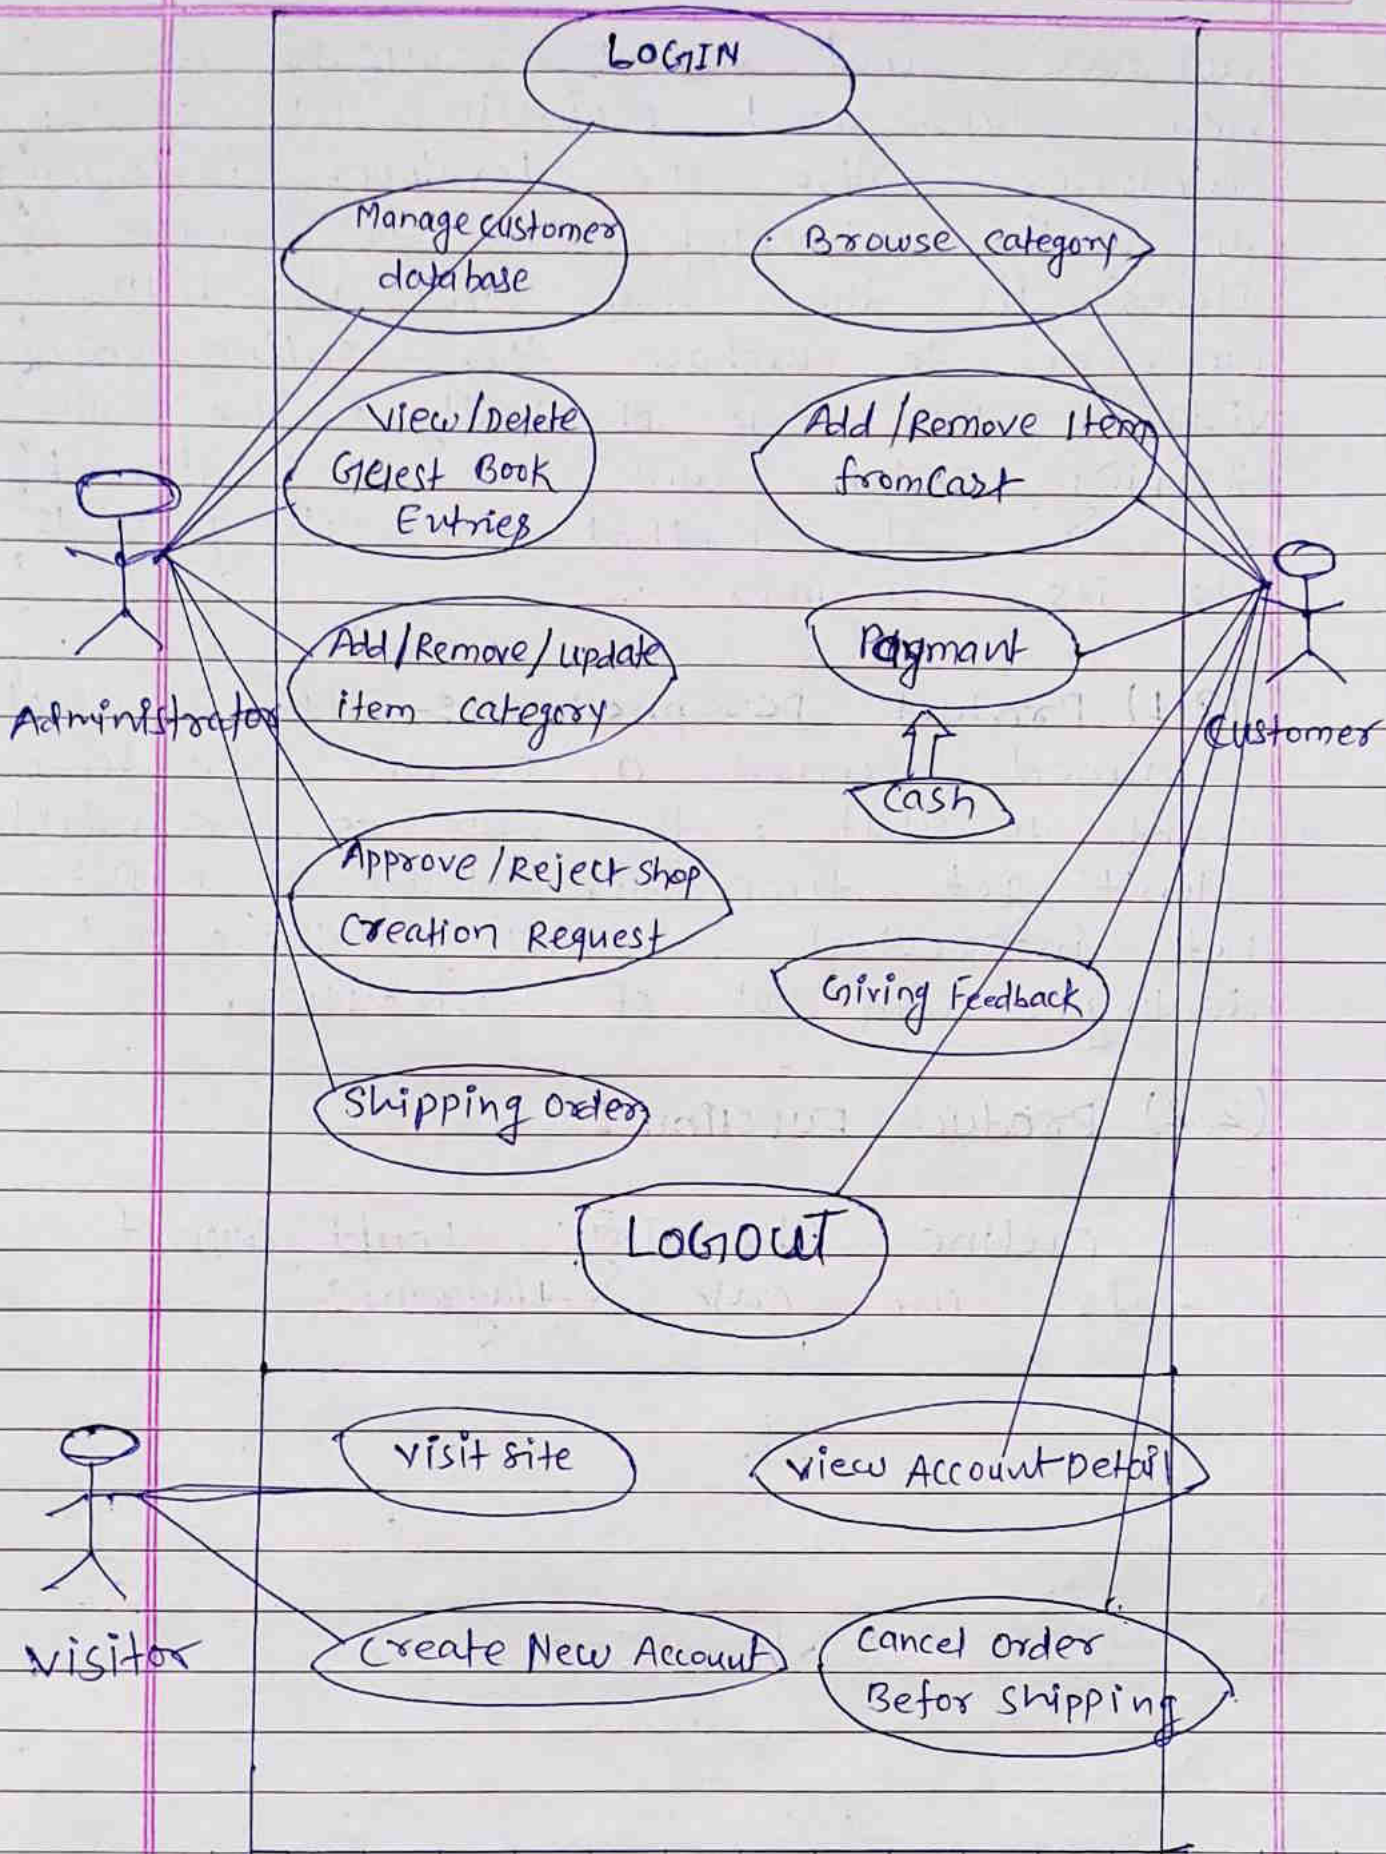 LOGIN
Manage customer
database
Browse category
View/Delete
Guest Book
Entries
Add/Remove Item
from Cart
Administrator
Add/Remove/update
item category
Paymant
Cash
Customer
Approve/Reject Shop
Creation Request
Giving Feedback
Shipping Order
LOGOUT
Visit site
View Account Detail
Visitor
Create New Account
Cancel order
Befor Shipping